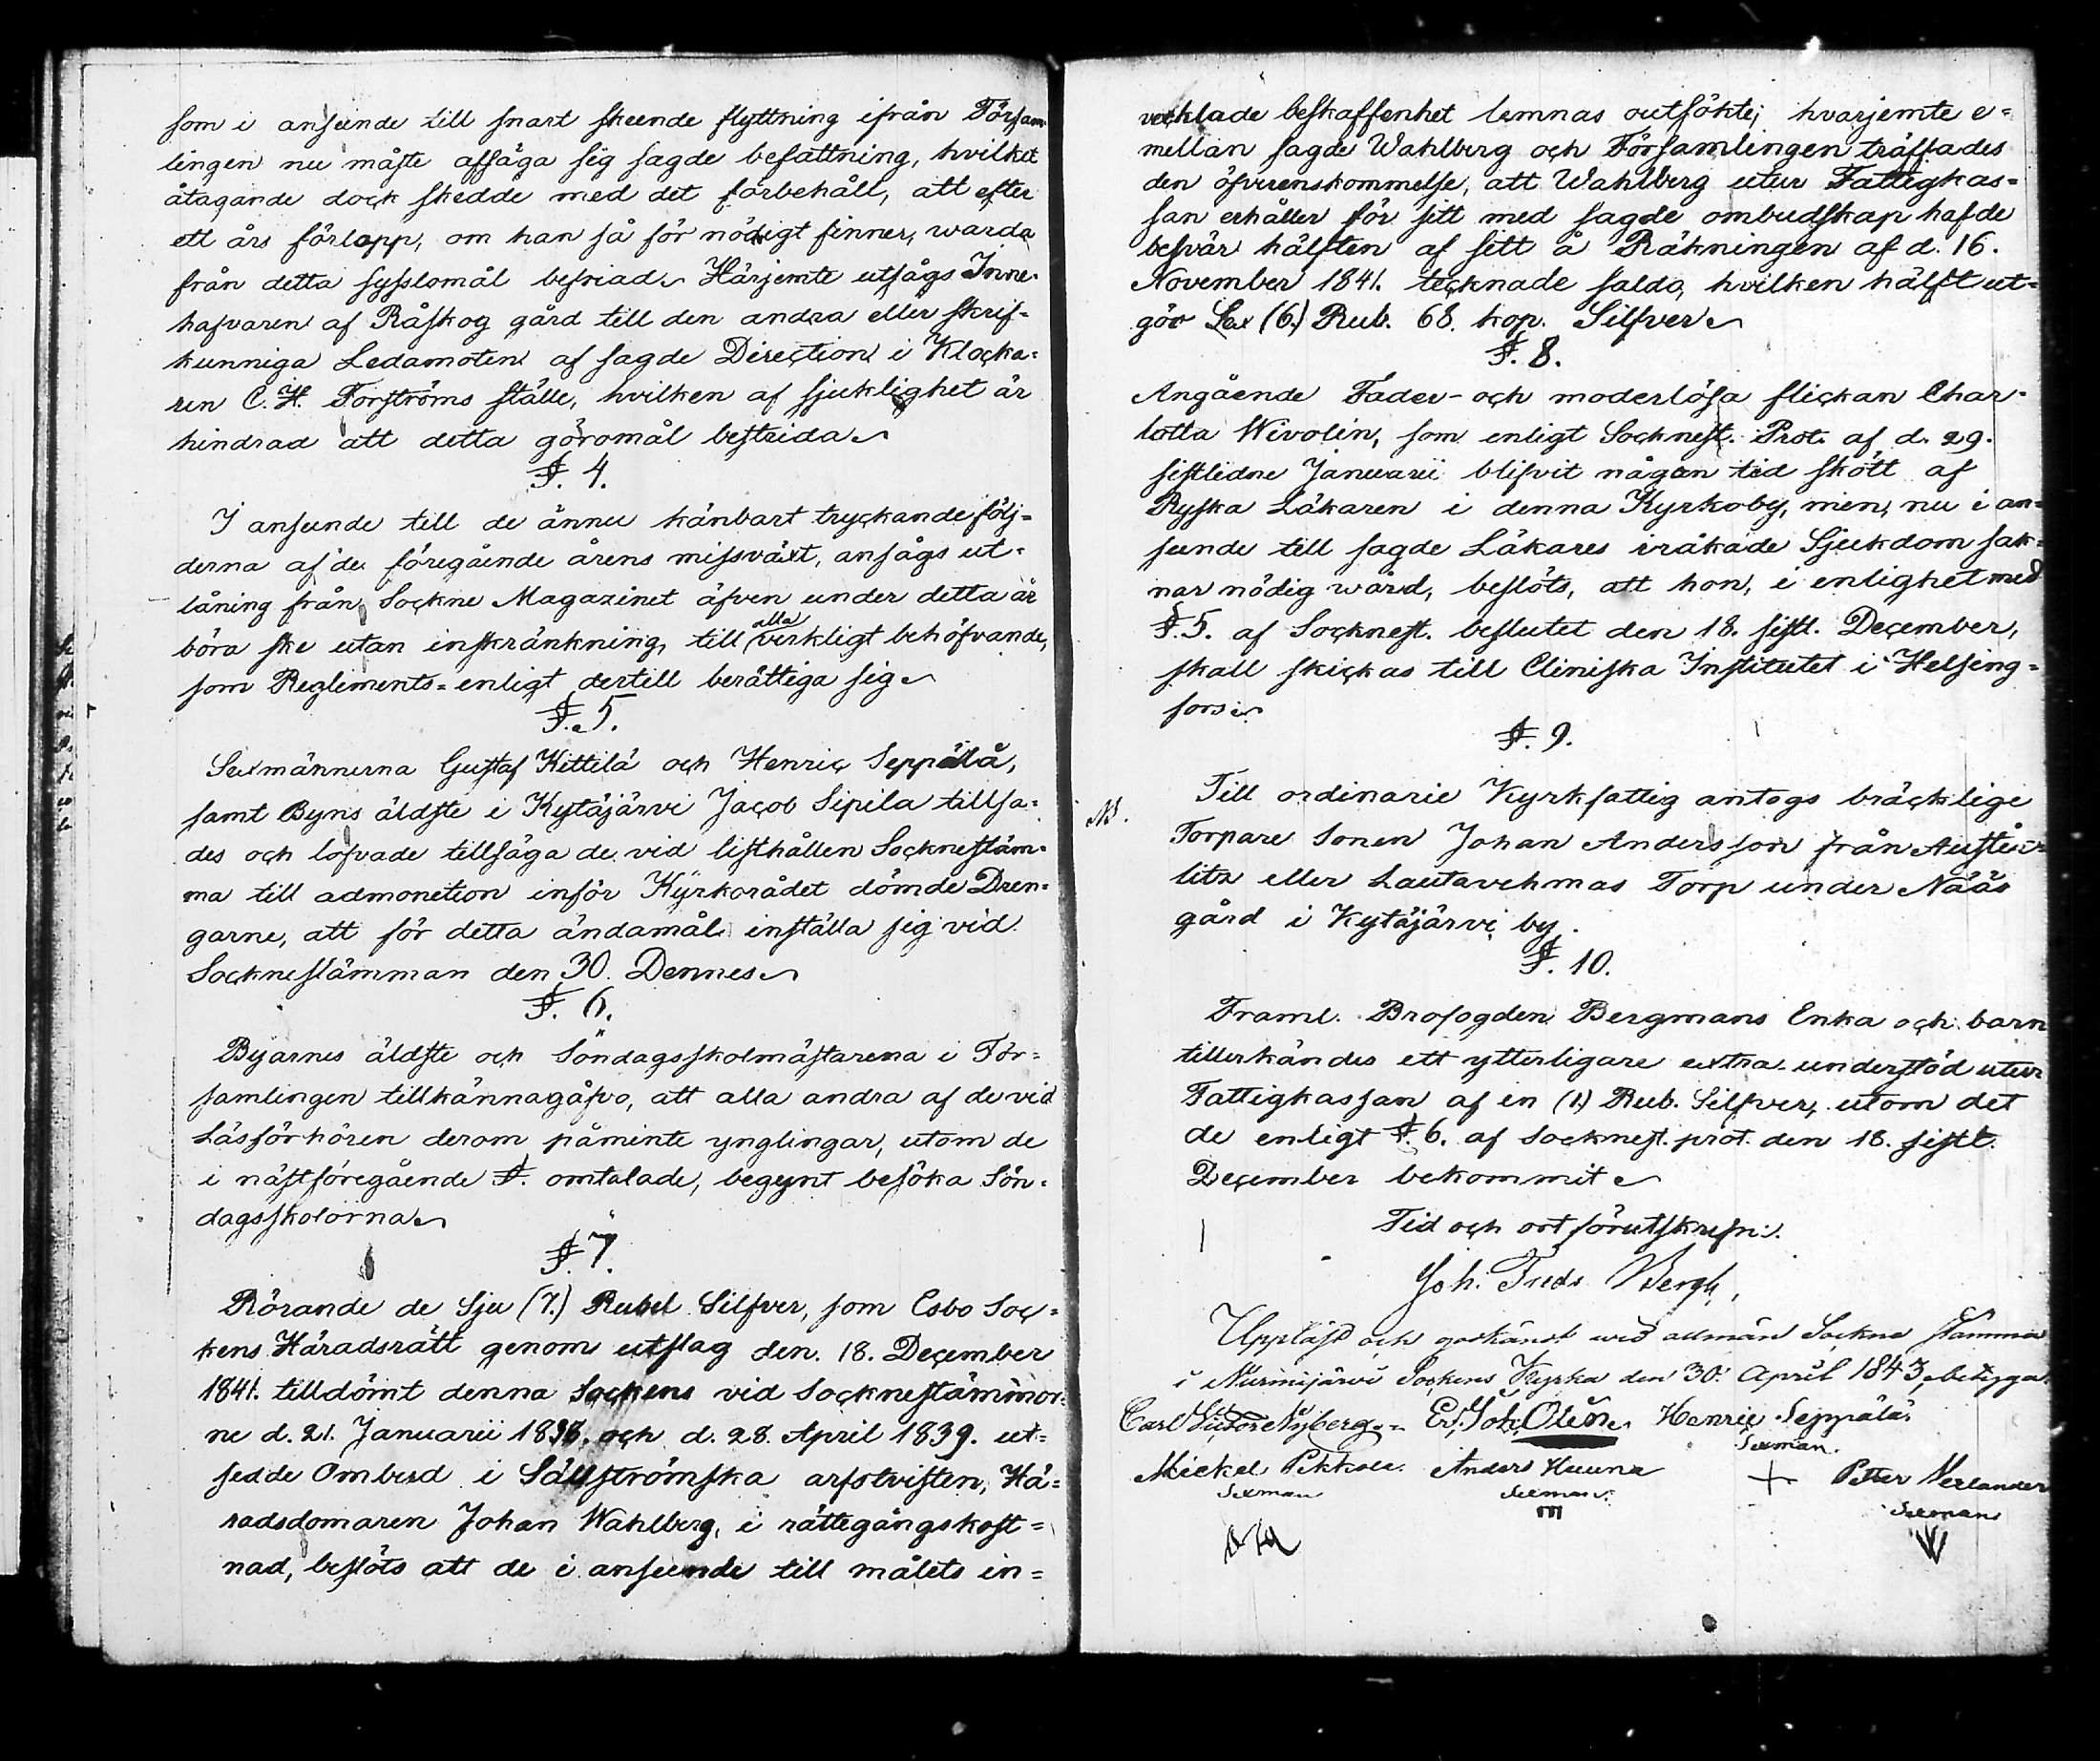 som i anseende till snart skeende flyttning ifrån Försam-
lingen nu måste afsäga sig sagde befattning, hvilket
åtagande dock skedde med det förbehåll, att efter
ett års förlopp, om han så för nödigt finner, warda
från detta sysslomål befriad. Härjemte utsågs Inne-
hafvaren af Råskog gård till den andra eller skrif-
kunniga Ledamoten af sagde Direction i Klocka-
ren C. H. Forströms ställe, hvilken af sjuklighet är
hindrad att detta göromål bestrida.
§. 4.
I anseende till de ännu känbart tryckande följ-
derna af de föregående årens missväxt, ansågs ut-
låning från Sockne Magazinet äfven under detta år
böra ske utan inskränkning, till alla verkligt behöfvande,
som Reglements-enligt dertill berättiga sig.
§. 5.
Sexmännerna Gustaf Kittilä och Henric Seppälä,
samt Byns äldste i Kytäjärvi Jacob Sipilä tillsa-
des och lofvade tillsäga de vid listhållen Sockneståm-
ma till admonetion inför Kyrkorådet dömde Dren-
garne, att för detta ändamål inställa sig vid
Socknestämman den 30. Dennes.
§. 6.
Byarnes äldste och Söndagsskolmästarena i För-
samlingen tillkännagåfvo, att alla andra af de vid
Läsförhören derom påminte ynglingar, utom de
i nästföregående §. omtalade, begynt besöka Sön-
dagsskolorna.
§. 7.
Rörande de Sju (7.) Rubel Silfver, som Esbo Soc-
kens Häradsrätt genom utslag den. 18. December
1841. tilldömt denna Sockens vid Socknestämmor-
ne d. 21. Januarii 1838. och d. 28. April 1839. ut-
sedde Ombud i Sällströmska arfstvisten, Hä-
radsdomaren Johan Wahlberg, i rättegångskost-
nad, beslöts att de i anseende till målets in-
vecklade beskaffenhet lemnas outsökte; hvarjemte e-
mellan sagde Wahlberg och Församlingen träffades
den öfverenskommelse, att Wahlberg utur Fattigkas-
san erhåller för sitt med sagde ombudskap hafde
besvär hälften af sitt å Räkningen af d. 16.
November 1841. tecknade saldo, hvilken hälft ut-
gör Sex (6.) Rub. 68. kop. Silfver.
§. 8.
Angående Fader- och moderlösa flickan Char-
lotta Wivolin, som enligt Socknest. Prot. af d. 29.
sistledne Januarii blifvit någon tid skött af
Ryska Läkaren i denna Kyrkoby, men, nu i an-
seende till sagde Läkares iråkade Sjukdom sak-
nar nödig wård, beslöts, att hon, i enlighet med
§. 5. af Socknest. beslutet den 18. sistl. December,
skall skickas till Cliniska Institutet i Helsing-
fors.
§. 9.
NB.
Till ordinarie Kyrkfattig antogs bräcklige
Torpare Sonen Johan Andersson från Auster-
litz eller Lautavehmas Torp under Nääs
gård i Kytäjärvi by.
§. 10.
Framl. Brofogden Bergmans Enka och barn
tillerkändes ett ytterligare extra understöd utur
Fattigkassan af en (1.) Rub. Silfver, utom det
de enligt §. 6. af Socknest. prot. den 18. sistl.
December bekommit.
Tid och ort förutskrefne.
Joh. Fredr Bergh,
Uppläst och godkänd wid allmän Sockne Stämma
i Nurmijärvi Sockens Kyrka den 30. April 1843, betyga.
Carl Nyberg. Ed. Joh. Olin. Henric Seppälä.
Sexman.
Mickel Pekkala. Anders Huuna Petter Verlander
Sexman Sexman. Sexman